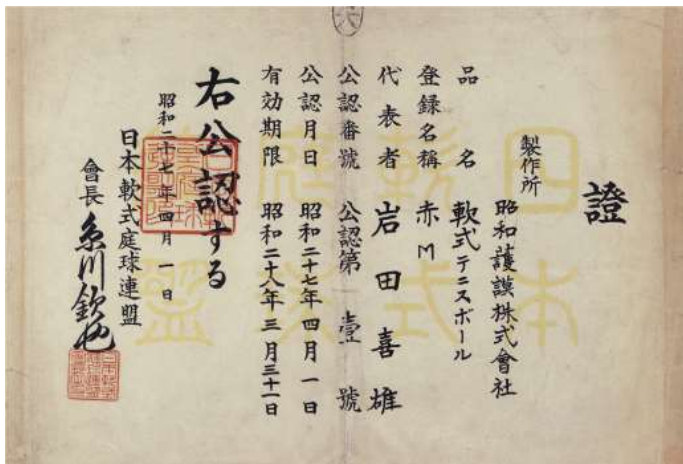 證
製作所
昭和護謨株式會社
品名 軟式テニスボール
登録名稱 赤M
代表者 岩田喜雄
公認番號 公認第壹號
公認月日 昭和二十七年四月一日
有効期限 昭和二十八年三月三十一日
右公認する
昭和二十七年四月一日
日本軟式庭球連盟
會長 糸川欽也
日本
軟式
庭球
連盟